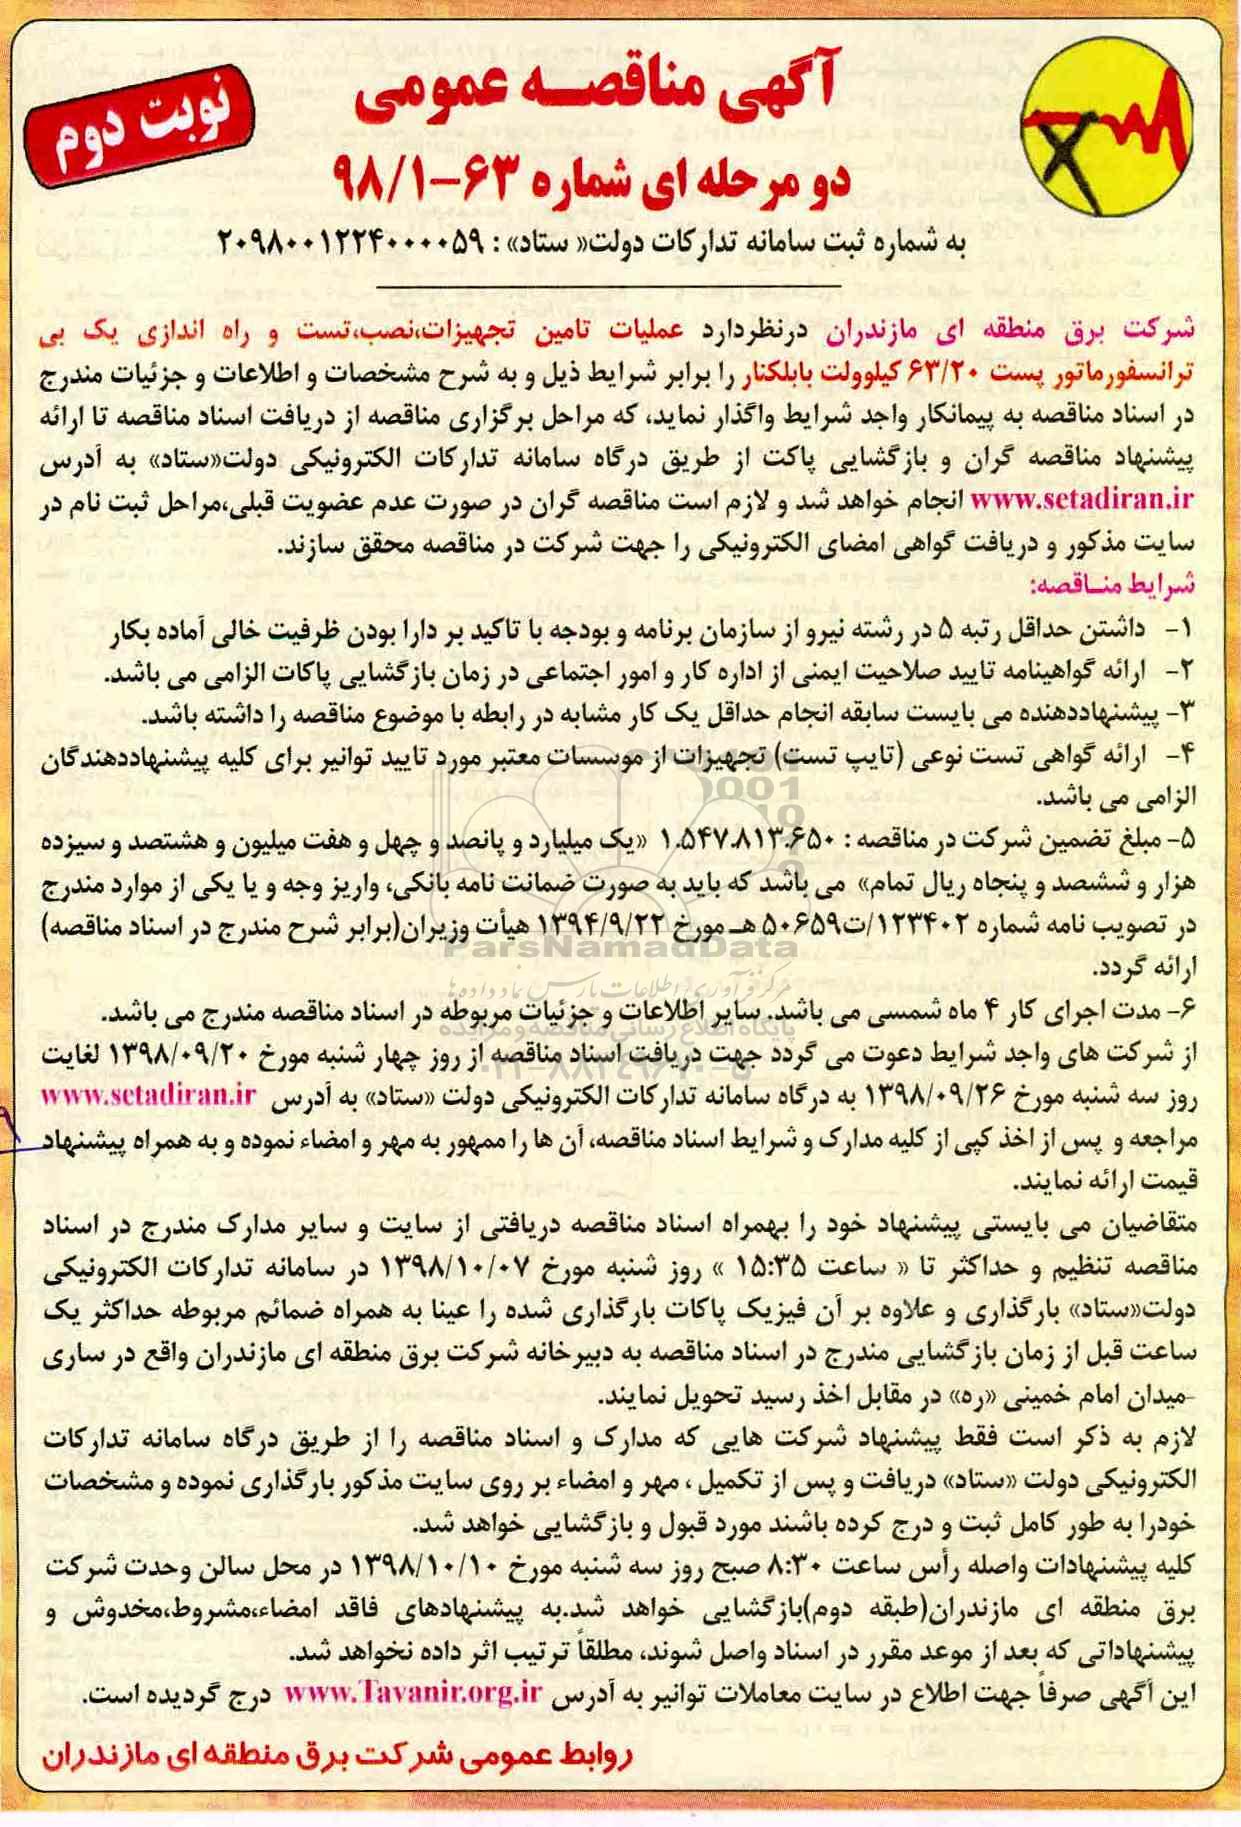 آگهی مناقصه عمومی
نوبت دوم
دو مرحله ای شماره ۶۳-۹۸/۱
به شماره ثبت سامانه تدارکات دولت« ستاد» : ۲۰۹۸۰۰۱۲۲۴۰۰۰۰۵۹
شرکت برق منطقه ای مازندران درنظردارد عملیات تامین تجهیزات،نصب،تست و راه اندازی یک بی
ترانسفورماتور پست ۶۳/۲۰ کیلوولت بابلکنار را برابر شرایط ذیل و به شرح مشخصات و اطلاعات و جزئیات مندرج
در اسناد مناقصه به پیمانکار واجد شرایط واگذار نماید، که مراحل برگزاری مناقصه از دریافت اسناد مناقصه تا ارائه
پیشنهاد مناقصه گران و بازگشایی پاکت از طریق درگاه سامانه تدارکات الکترونیکی دولت«ستاد» به آدرس
www.setadiran.ir انجام خواهد شد و لازم است مناقصه گران در صورت عدم عضویت قبلی،مراحل ثبت نام در
سایت مذکور و دریافت گواهی امضای الکترونیکی را جهت شرکت در مناقصه محقق سازند.
شرایط مناقصه:
۱- داشتن حداقل رتبه ۵ در رشته نیرو از سازمان برنامه و بودجه با تاکید بر دارا بودن ظرفیت خالی آماده بکار
۲- ارائه گواهینامه تایید صلاحیت ایمنی از اداره کار و امور اجتماعی در زمان بازگشایی پاکات الزامی می باشد.
۳- پیشنهاددهنده می بایست سابقه انجام حداقل یک کار مشابه در رابطه با موضوع مناقصه را داشته باشد.
۴- ارائه گواهی تست نوعی (تایپ تست) تجهیزات از موسسات معتبر مورد تایید توانیر برای کلیه پیشنهاددهندگان
الزامی می باشد.
۵- مبلغ تضمین شرکت در مناقصه : ۱.۵۴۷.۸۱۳.۶۵۰ «یک میلیارد و پانصد و چهل و هفت میلیون و هشتصد و سیزده
هزار و ششصد و پنجاه ریال تمام» می باشد که باید به صورت ضمانت نامه بانکی، واریز وجه و یا یکی از موارد مندرج
در تصویب نامه شماره ۱۲۳۴۰۲/ت۵۰۶۵۹ هـ مورخ ۱۳۹۴/۹/۲۲ هیأت وزیران(برابر شرح مندرج در اسناد مناقصه)
ParsNamadData
ارائه گردد.
مرکز فرآوری اطلاعات پارس نماد داده ها
۶- مدت اجرای کار ۴ ماه شمسی می باشد. سایر اطلاعات و جزئیات مربوطه در اسناد مناقصه مندرج می باشد.
پایگاه اطلاع رسانی مناقصه و مزایده
از شرکت های واجد شرایط دعوت می گردد جهت دریافت اسناد مناقصه از روز چهار شنبه مورخ ۱۳۹۸/۰۹/۲۰ لغایت
روز سه شنبه مورخ ۱۳۹۸/۰۹/۲۶ به درگاه سامانه تدارکات الکترونیکی دولت «ستاد» به آدرس www.setadiran.ir
مراجعه و پس از اخذ کپی از کلیه مدارک و شرایط اسناد مناقصه، آن ها را ممهور به مهر و امضاء نموده و به همراه پیشنهاد
قیمت ارائه نمایند.
متقاضیان می بایستی پیشنهاد خود را بهمراه اسناد مناقصه دریافتی از سایت و سایر مدارک مندرج در اسناد
مناقصه تنظیم و حداکثر تا « ساعت ۱۵:۳۵ » روز شنبه مورخ ۱۳۹۸/۱۰/۰۷ در سامانه تدارکات الکترونیکی
دولت«ستاد» بارگذاری و علاوه بر آن فیزیک پاکات بارگذاری شده را عینا به همراه ضمائم مربوطه حداکثر یک
ساعت قبل از زمان بازگشایی مندرج در اسناد مناقصه به دبیرخانه شرکت برق منطقه ای مازندران واقع در ساری
-میدان امام خمینی «ره» در مقابل اخذ رسید تحویل نمایند.
لازم به ذکر است فقط پیشنهاد شرکت هایی که مدارک و اسناد مناقصه را از طریق درگاه سامانه تدارکات
الکترونیکی دولت «ستاد» دریافت و پس از تکمیل ، مهر و امضاء بر روی سایت مذکور بارگذاری نموده و مشخصات
خودرا به طور کامل ثبت و درج کرده باشند مورد قبول و بازگشایی خواهد شد.
کلیه پیشنهادات واصله رأس ساعت ۸:۳۰ صبح روز سه شنبه مورخ ۱۳۹۸/۱۰/۱۰ در محل سالن وحدت شرکت
برق منطقه ای مازندران(طبقه دوم)بازگشایی خواهد شد.به پیشنهادهای فاقد امضاء،مشروط،مخدوش و
پیشنهاداتی که بعد از موعد مقرر در اسناد واصل شوند، مطلقاً ترتیب اثر داده نخواهد شد.
این آگهی صرفاً جهت اطلاع در سایت معاملات توانیر به آدرس www.Tavanir.org.ir درج گردیده است.
روابط عمومی شرکت برق منطقه ای مازندران